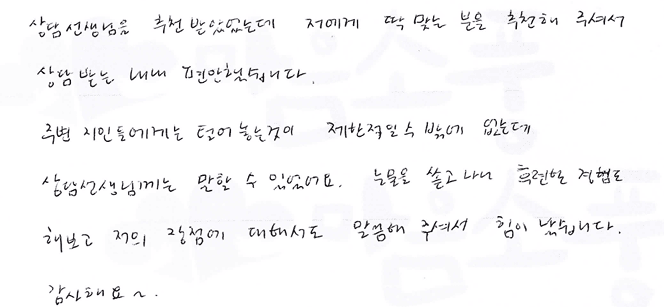 상담선생님을 추천 받았었는데 저에게 딱 맞는 분을 추천해 주셔서
상담 받는 내내 편안했습니다.
주변 지인들에게는 털어 놓는것이 제한적일수 밖에 없는데
상담선생님께는 말할 수 있었어요. 눈물을 쏟고나니 후련한 경험도
해보고 저의 장점에 대해서도 말씀해 주셔서 힘이 났습니다.
감사해요~.